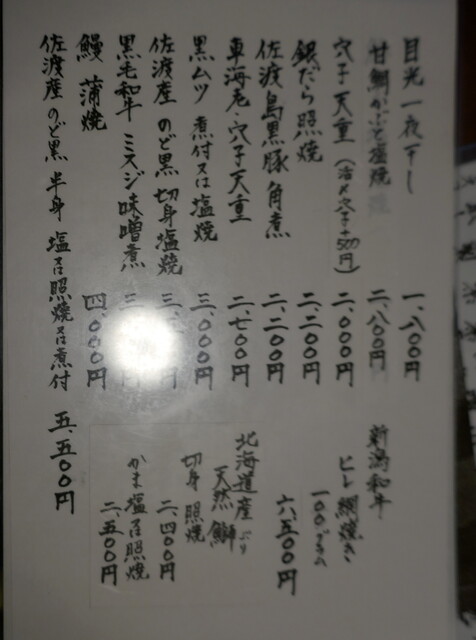 目光一夜干し 一、八〇〇円
甘鯛かぶと塩焼 二、八〇〇円
穴子天重（活〆穴子+500円） 二、〇〇〇円
銀だら照焼 二、二〇〇円
佐渡島黒豚角煮 二、二〇〇円
車海老・穴子天重 二、七〇〇円
黒ムツ 煮付又は塩焼 三、〇〇〇円
佐渡産 のど黒 切身塩焼 三、 円
黒毛和牛 ミスジ味噌煮 三、
鰻 蒲焼 四、〇〇〇円
佐渡産 のど黒 半身 塩又は照焼又は煮付 五、五〇〇円
新潟和牛
ヒレ網焼き
100グラム
六、五〇〇円
北海道産
天然 鰤 ぶり
切身 照焼
二、四〇〇円
かま塩又は照焼
二、五〇〇円